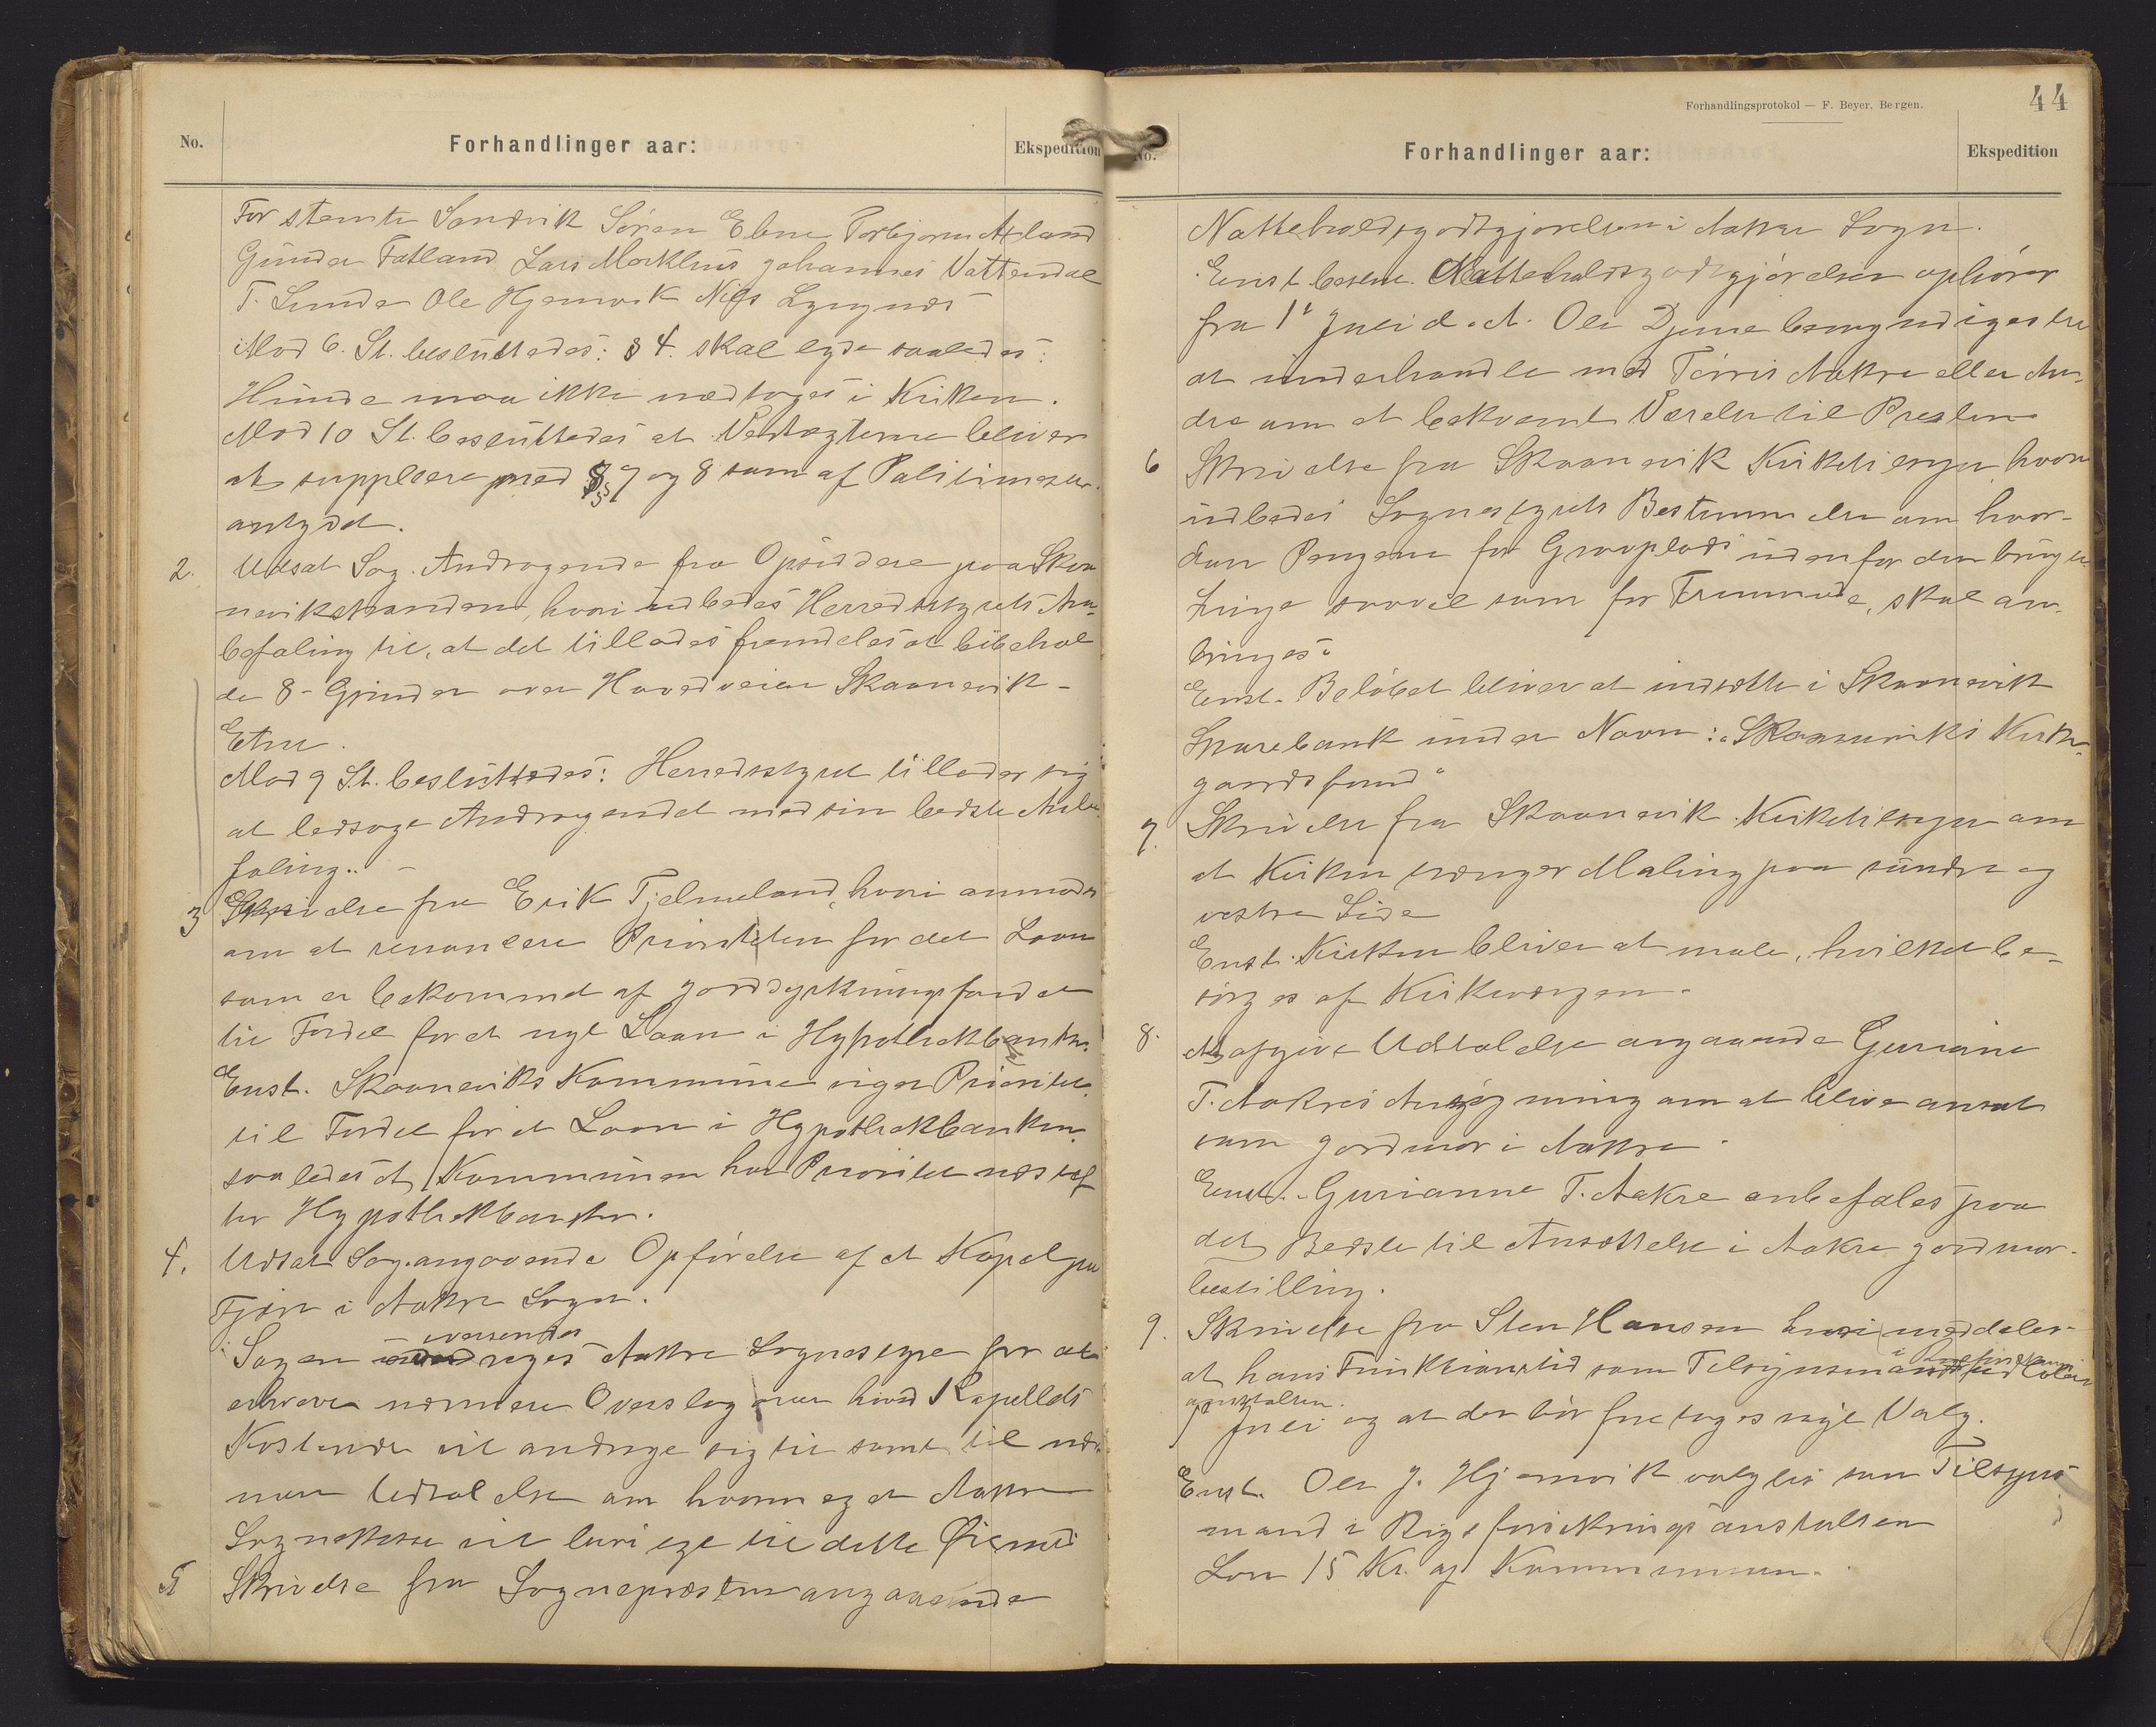 No.
Forhandlinger aar:
Ekspedition
For stemte Sandvik Søren Ebne Torbjørn Axland
Gunder Fatland Lars Mœklhus Johannes Vattendal
T. Lunde Ole Hjemvik Nils Lyngnæs
Mod 6. St. besluttedes: § 4. skal lyde saaledes:
Hunde maa ikke medtages i Kirken.
Mod 10 St. besluttedes at Vedtægterne bliver
at supplere med §§ 7 og 8 som af Politimester
antydet.
2. Udsat Sag. Andragende fra Opsiddere paa Skaa
nevikstranden, hvori udbedes Herredstyrets An-
befaling til, at det tillades fremdeles at bibehol
de 8 - Grinder over Hovedveien Skaanevik -
Etne.
Mod 9 St. besluttedes: Herredsstyret tillader sig
at ledsage Andragendet med sin bedste Anbe
faling.. -
3 Skrivelse fra Erik Tjelmeland, hvori anmodes
om at renoncere Prioriteten for det Laan
som er bekommet af Jorddyrkningsfondet
til Fordel for et nyt Laan i Hypothekbanken.
Enst. Skaaneviks Kommune viger Prioritet
til Fordel for et Laan i Hypothekbanken,
saaledes at Kommunen har Prioritet næst ef
ter Hypothekbanken.
4. Udsat Sag angaaende Opførelse af et Kapel paa
Fjøn i Aakre Sogn.
oversendes
Sagen Aakre Sognestyre for at
erhverve nærmere Overslag over hvad Kapellets
Kostende vil andrage sig til samt til nær
mere Udtalelse om hvormeget Aakre
Sognekasse vil bevilge til dette Øiemed
5 Skrivelse fra Sognepræsten angaaende
Forhandlingsprotokol — F. Beyer, Bergen.
44
No.
Forhandlinger aar:
Ekspedition
Natteholdsgodtgjørelsen i Aakre Sogn.
Enst beslut. Natteholdsgodtgjørelsen ophører
fra 1ste Juli d. A. Ole Djunne bemyndiges til
at underhandle med Tørris Aakre eller An-
dre om et bekvemt Værelse til Presten
6 Skrivelse fra Skaanevik Kirketilsyn, hvori
udbedes Sognestyrets Bestemmelse om hvor-
dan Pengene for Gravplads udenfor den
saavel som for Fremmede, skal an-
bringes.
Enst. Beløbet bliver at indsætte i Skaanevik
Sparebank under Navn: "Skaaneviks Kirke-
gaardsfond"
7. Skrivelse fra Skaanevik Kirketilsyn om
at Kirken trænger Maling paa søndre og
vestre Side
Enst. Kirken bliver at male, hvilket be-
sørges af Kirkeværgen.
8. At afgive Udtalelse angaaende Guriane
T. Aakres Ansøgning om at blive ansat
som Jordmor i Aakre.
Enst. Gurianne T. Aakre anbefales paa
det Bedste til Ansættelse i Aakre Jordmor-
bestilling.
9. Skrivelse fra Sten Hansen hvori meddeles
at hans Funktionstid som Tilsynsmand
anstalten
1 Juli og at der bør foretages nyt Valg.
Enst. Ole J. Hjemvik valgtes som Tilsyns
mand i Rigsforsikringsanstalten
Løn 15 Kr. af Kommunen.